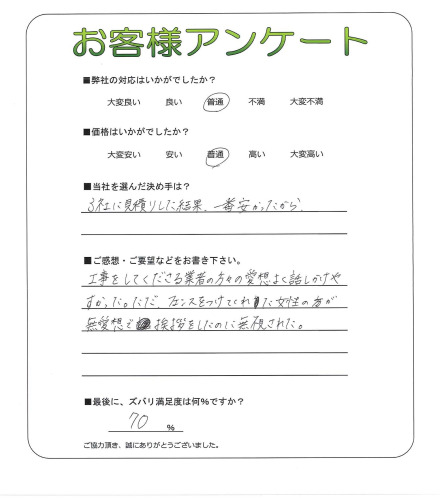 お客様アンケート
■弊社の対応はいかがでしたか?
大変良い 良い 普通 不満 大変不満
■価格はいかがでしたか?
大変安い 安い 普通 高い 大変高い
■当社を選んだ決め手は?
3社に見積りした結果、一番安かったから。
■ご感想・ご要望などをお書き下さい。
工事をしてくださる業者の方々の愛想よく話しかけや
すかった。ただ、フェンスをつけてくれた女性の方が
無愛想で 挨拶をしたのに無視された。
■最後に、ズバリ満足度は何%ですか?
70 %
ご協力頂き、誠にありがとうございました。